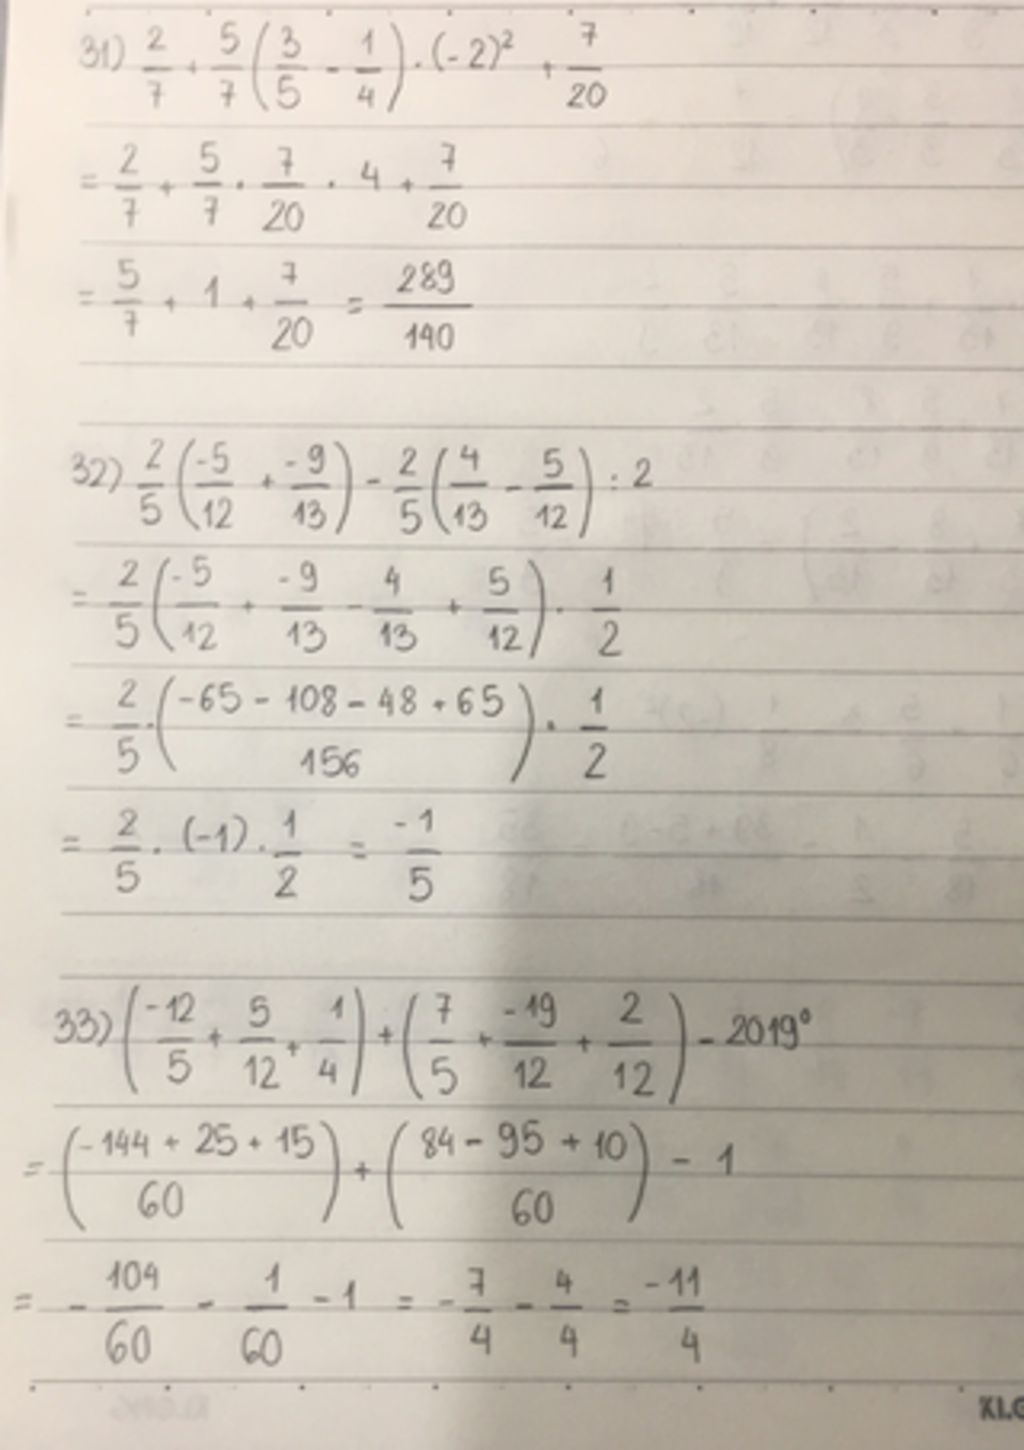 31) 2/7 + 5/7 (3/5 - 1/4) . (-2)² + 7/20
= 2/7 + 5/7 . 7/20 . 4 + 7/20
= 5/7 + 1 + 7/20 = 289/140
32) 2/5 (-5/12 + -9/13) - 2/5 (4/13 - 5/12) : 2
= 2/5 (-5/12 + -9/13 - 4/13 + 5/12) . 1/2
= 2/5 . (-65 - 108 - 48 + 65 / 156) . 1/2
= 2/5 . (-1) . 1/2 = -1/5
33) (-12/5 + 5/12 + 1/4) + (7/5 + -19/12 + 2/12) - 2019⁰
= (-144 + 25 + 15 / 60) + (84 - 95 + 10 / 60) - 1
= - 104/60 - 1/60 - 1 = - 7/4 - 4/4 = -11/4